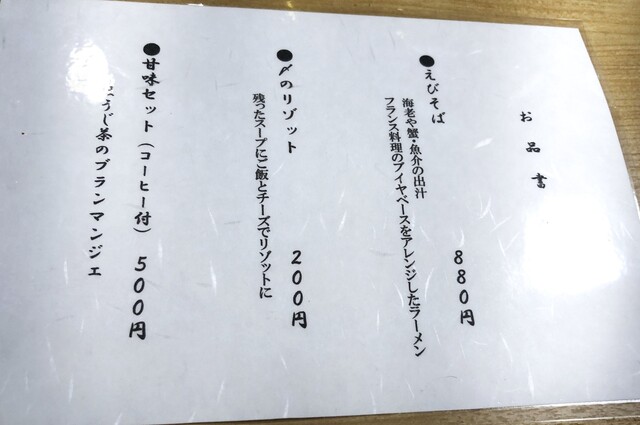 お品書
●えびそば
海老や蟹・魚介の出汁
フランス料理のブイヤベースをアレンジしたラーメン
880円
●〆のリゾット
残ったスープにご飯とチーズでリゾットに
200円
●甘味セット（コーヒー付）500円
ほうじ茶のブランマンジェ